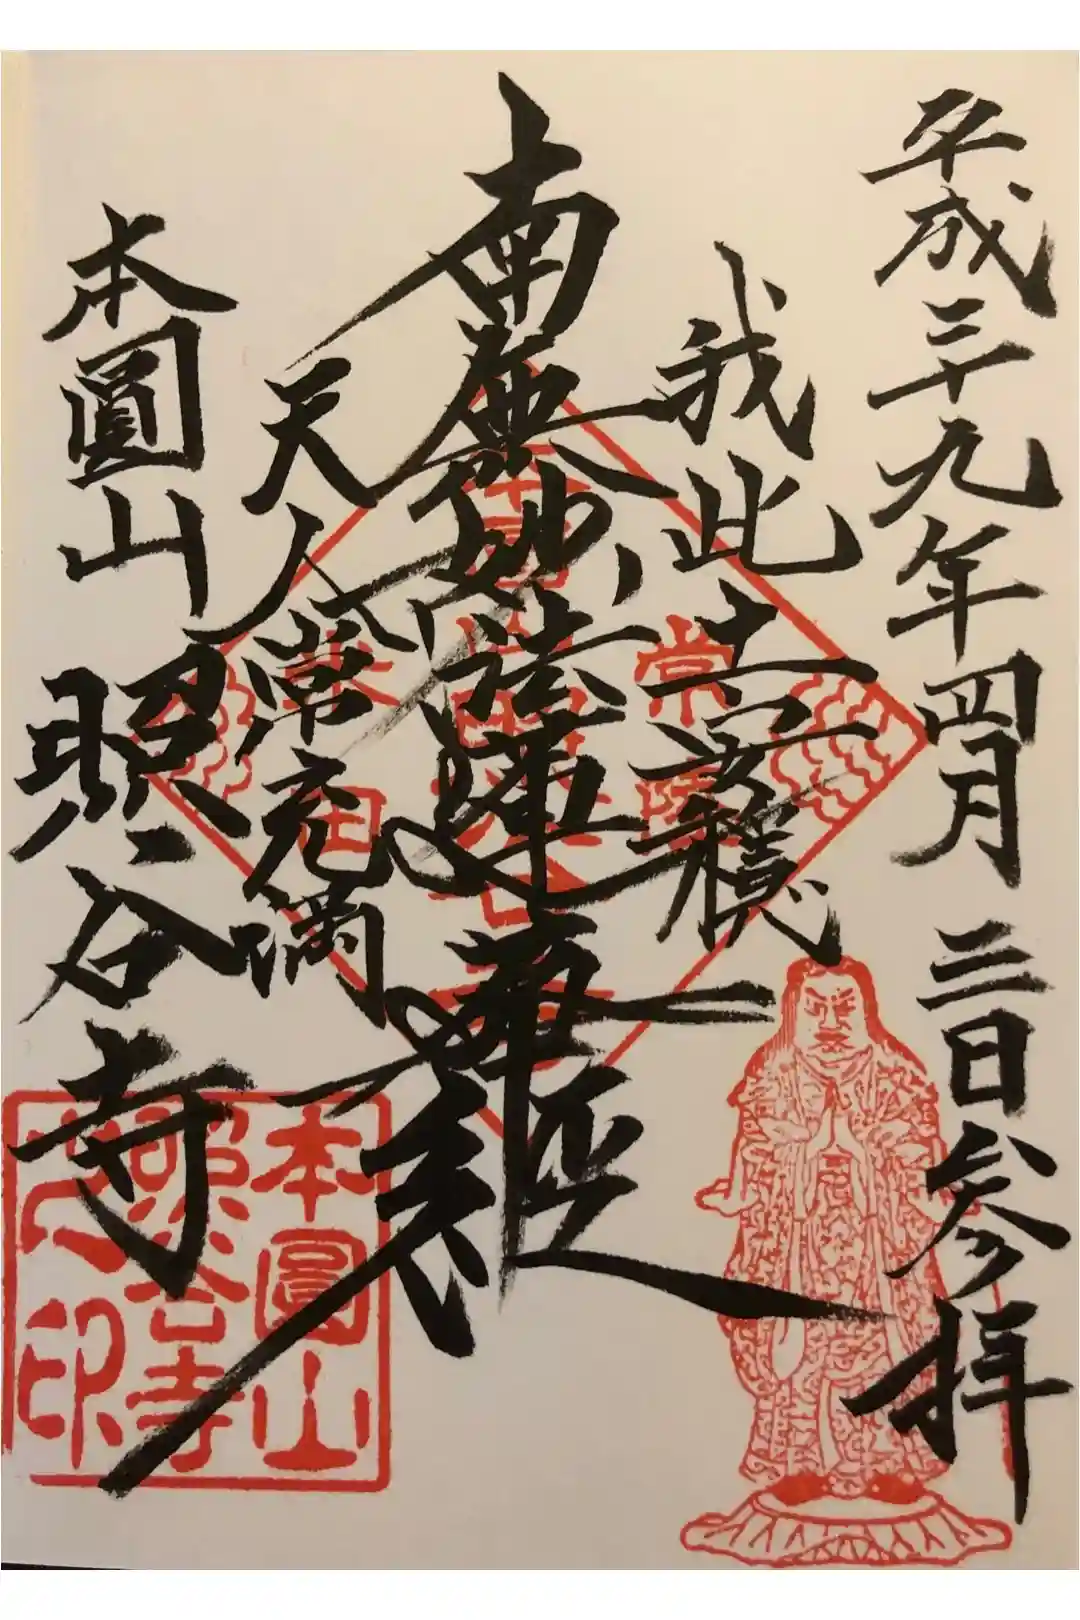 平成三十九年四月三日参拝
我此土安穏
南無妙法蓮華経
天人常充満
本圓山照谷寺
本圓山
照谷寺
之印